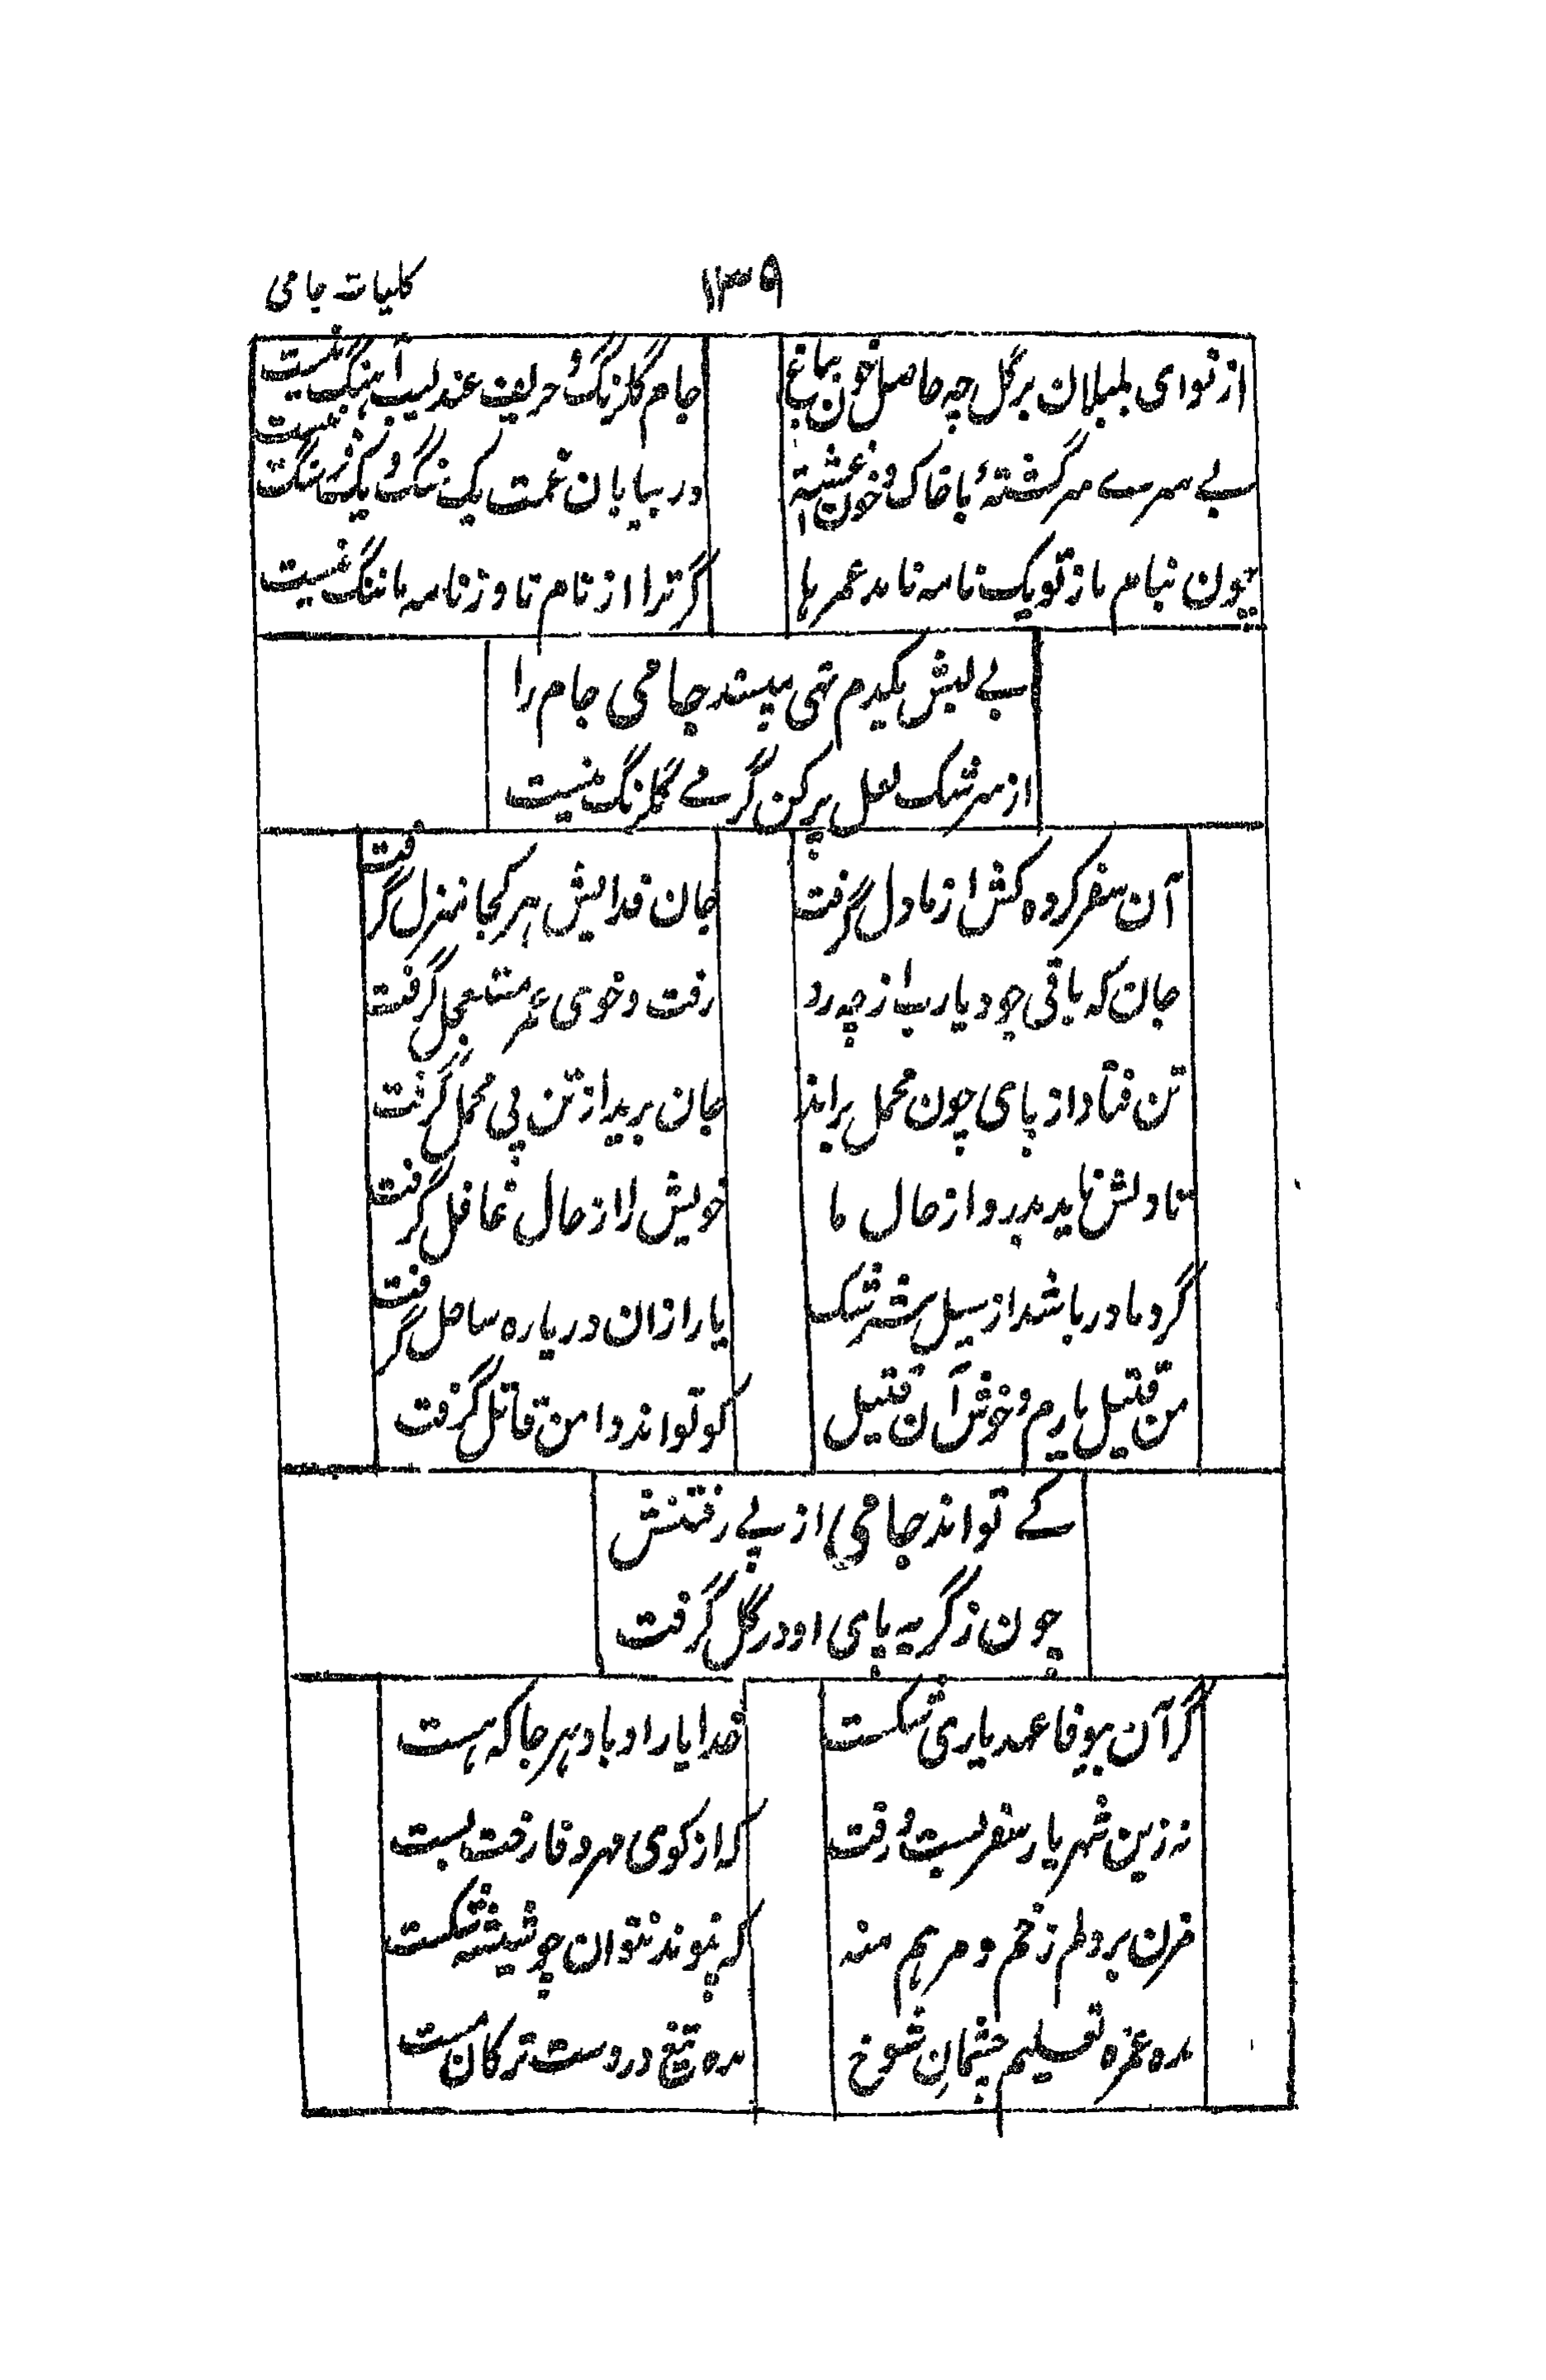 ۱۳۹
کلیات جامی
از نوای بلبلان بر گل چه حاصل خون بباغ
جام گلرنگ و حریف عندلیب آهنگ نیست
بے سرے سرگشتۂ با خاک و خون آغشتۀ
در بیابان غمت یک سنگ و یک فرسنگ نیست
چون نیام باز تو یک نامه نامد عمرها
گر ترا از نام ما وز نامه ما ننگ نیست
بے لبش یکدم تهی مپسند جامی جام را
از سرشک لعل پر کن گر مے گلرنگ نیست
آن سفر کرده کش از ما دل گرفت
جان فدایش هر کجا منزل گرفت
جان که باقی جود یارب از چه رو
رفت و خوی عمر مستعجل گرفت
تن فتاد از پای چون محمل براند
جان برید از تن پی محمل گرفت
تا دلش ناید بدرد از حال ما
خویش را از حال غافل گرفت
گرد ما دریا شد از سیل سرشک
یار ازان دریا ره ساحل گرفت
من قتیل یارم و خوش آن قتیل
کو تواند دامن قاتل گرفت
کے تواند جامی از پے رفتنش
چون ز گریه پای او در گل گرفت
گر آن بیوفا عهد یاری شکست
خدا یار او باد هر جا که هست
نه زین شهر یار سفر بست و رفت
که از کوی مهر و فا رخت بست
مزن بر دلم زخم و مرهم منه
که پیوند نتوان چو شیشه شکست
مده غمزه تعلیم چشمانِ شوخ
مده تیغ در دست ترکان مست